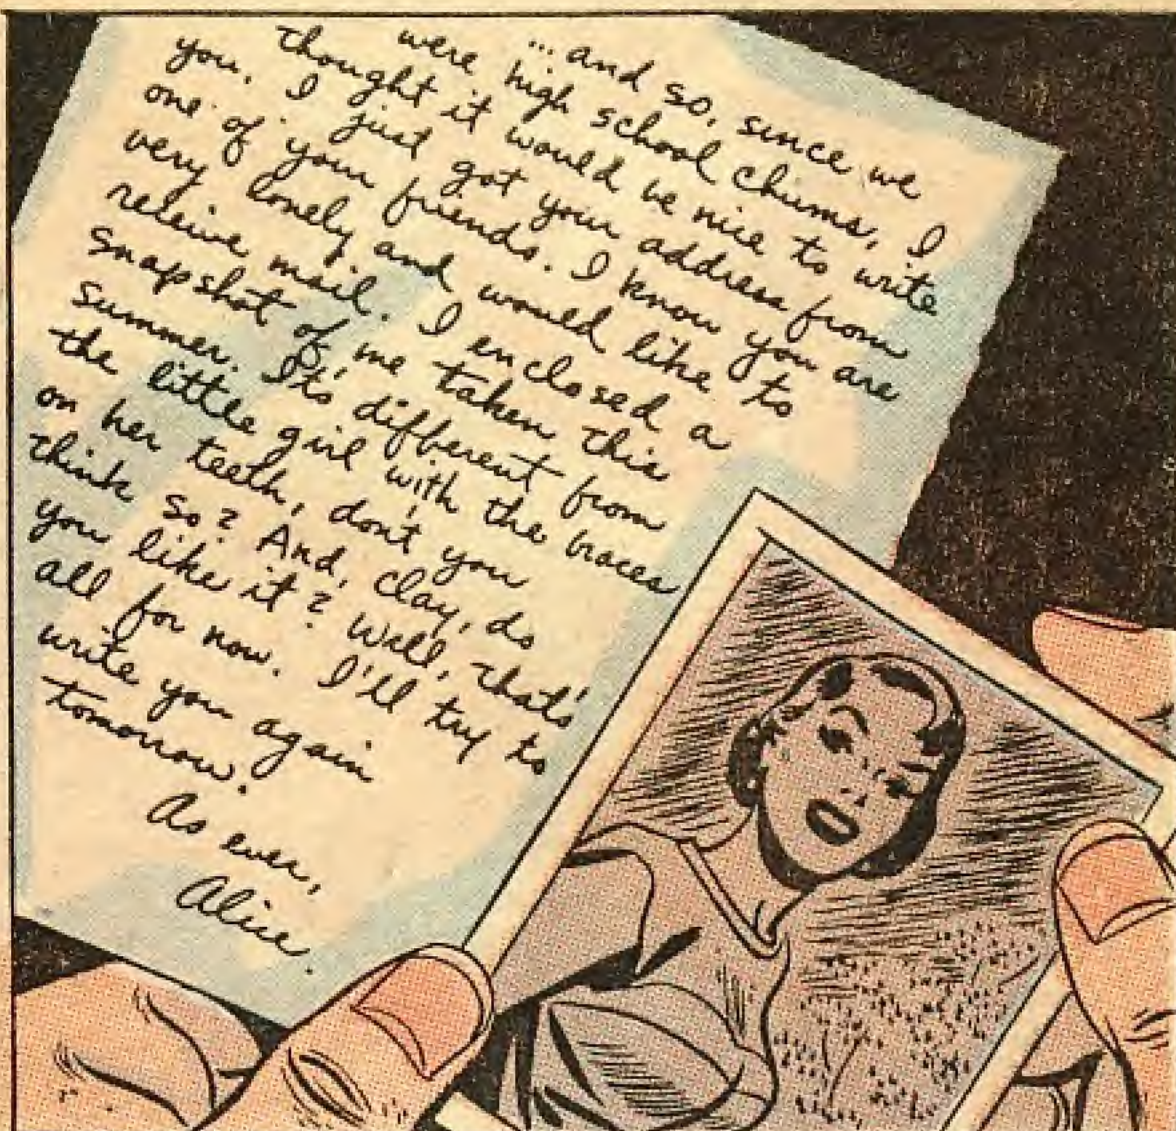 ...and so, since we
were high school chums, I
thought it would be nice to write
you. I just got your address from
one of your friends. I know you are
very lonely and would like to
receive mail. I enclosed a
snapshot of me taken this
summer. It's different from
the little girl with the braces
on her teeth, don't you
think so? And, Clay, do
you like it? Well, that's
all for now. I'll try to
write you again
tomorrow.
As ever,
Alice.